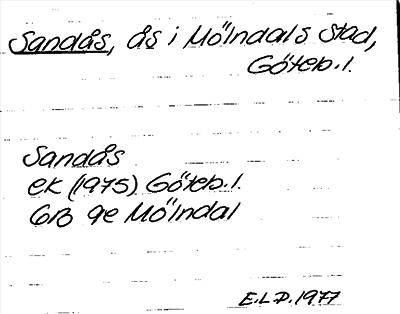 Sandås, ås i Mölndals stad,
Göteb. l.
Sandås
ek (1975) Göteb. l.
6B 9e Mölndal
E.L.D. 1977